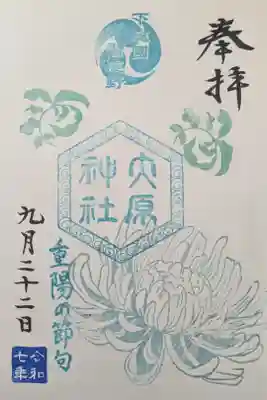 奉拝
下総國
大原神社
重陽の節句
九月二十二日
令和七年